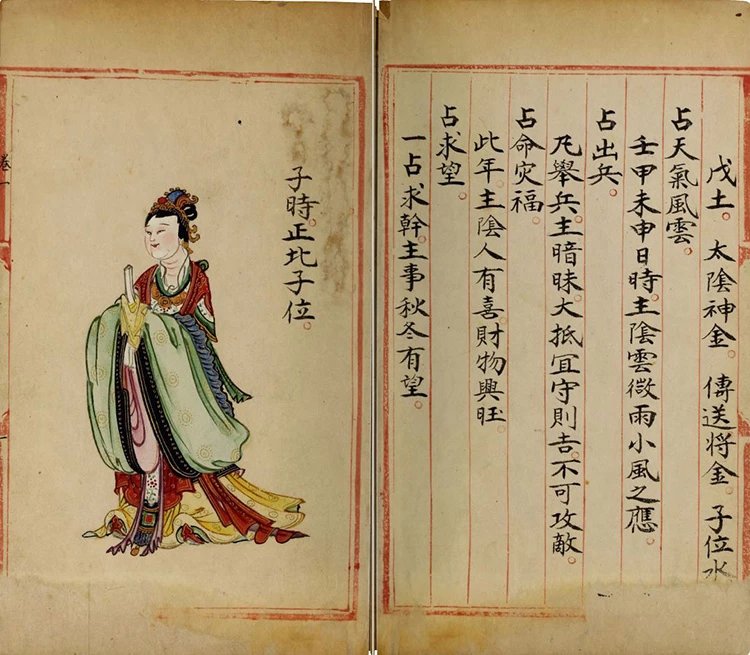 戊土。太陰神金。傳送将金。子位水
占天氣風雲。
壬甲未申日時。主陰雲微雨小風之應。
占出兵。
凡舉兵。主暗昧。大抵冝守則吉。不可攻敵。
占命灾福。
此年。主陰人有喜。財物興旺
占求望。
一占求幹。主事秋冬有望。
子時正北子位。
卷一